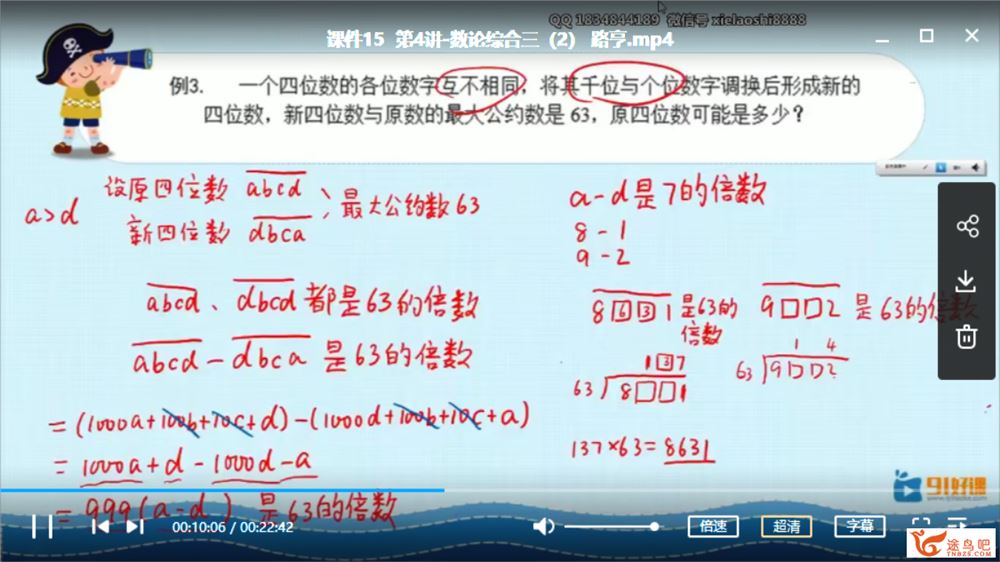 QQ 1834844189 微信号 xielaoshi8888
课件15 第4讲-数论综合三（2） 路亨.mp4
例3. 一个四位数的各位数字互不相同，将其千位与个位数字调换后形成新的
四位数，新四位数与原数的最大公约数是 63，原四位数可能是多少？
a>d
设原四位数 abcd
新四位数 dbca
最大公约数 63
abcd、dbcd 都是63的倍数
abcd - dbca 是63的倍数
= (1000a+100b+10c+d)-(1000d+100b+10c+a)
= 1000a+d-1000d-a
= 999(a-d) 是63的倍数
a-d是7的倍数
8-1
9-2
8631是63的
倍数
9□□2 是63的倍数
137
63 8□□1
137×63=8631
1 4
63 9□□2
91好课
00:10:06 / 00:22:42
倍速
超清
字幕
途鸟吧
TNBZS.COM